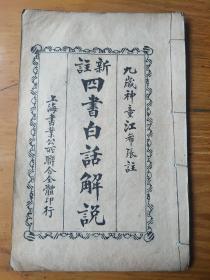 九歲神童江希張註
新註
四書白話解説
上海書業公所聯合全體印行